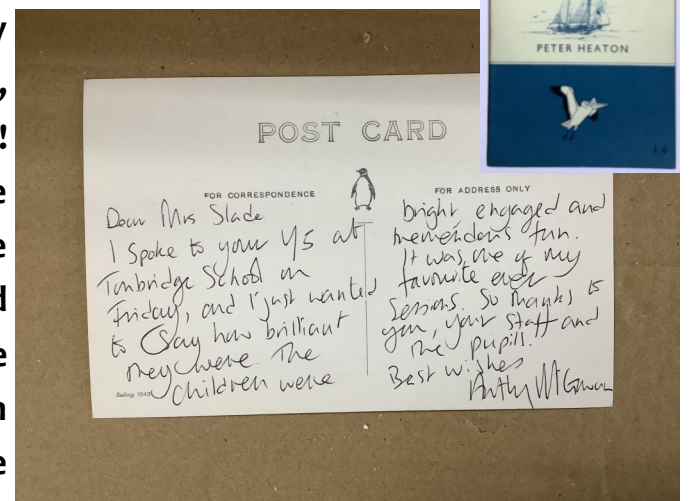 y
,
!
e
e
d
e
n
e
PETER HEATON
1/6
POST CARD
FOR CORRESPONDENCE
FOR ADDRESS ONLY
Dear Mrs Slade
I spoke to your Y5 at
Tonbridge School on
Friday, and I just wanted
to say how brilliant
they were. The
children were
Sailing, 1949
bright engaged and
tremendous fun.
It was one of my
favourite ever
sessions. So thanks to
you, your staff and
the pupils.
Best wishes
Anthony McGowan